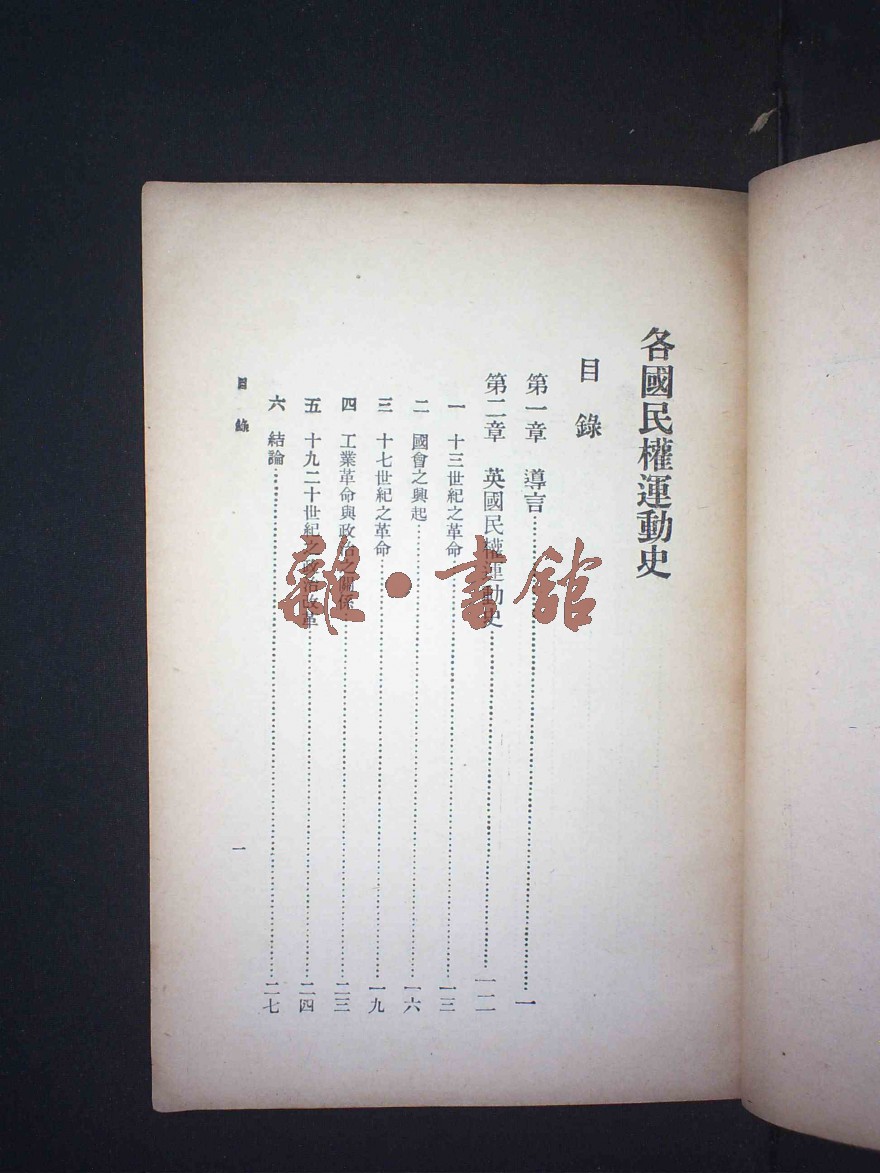 各國民權運動史
目錄
第一章 導言……一
第二章 英國民權運動史……一二
一 十三世紀之革命……一三
二 國會之興起……一六
三 十七世紀之革命……一九
四 工業革命與政治之關係……二三
五 十九二十世紀之政治改革……二四
六 結論……二七
目錄
一
雜·書館